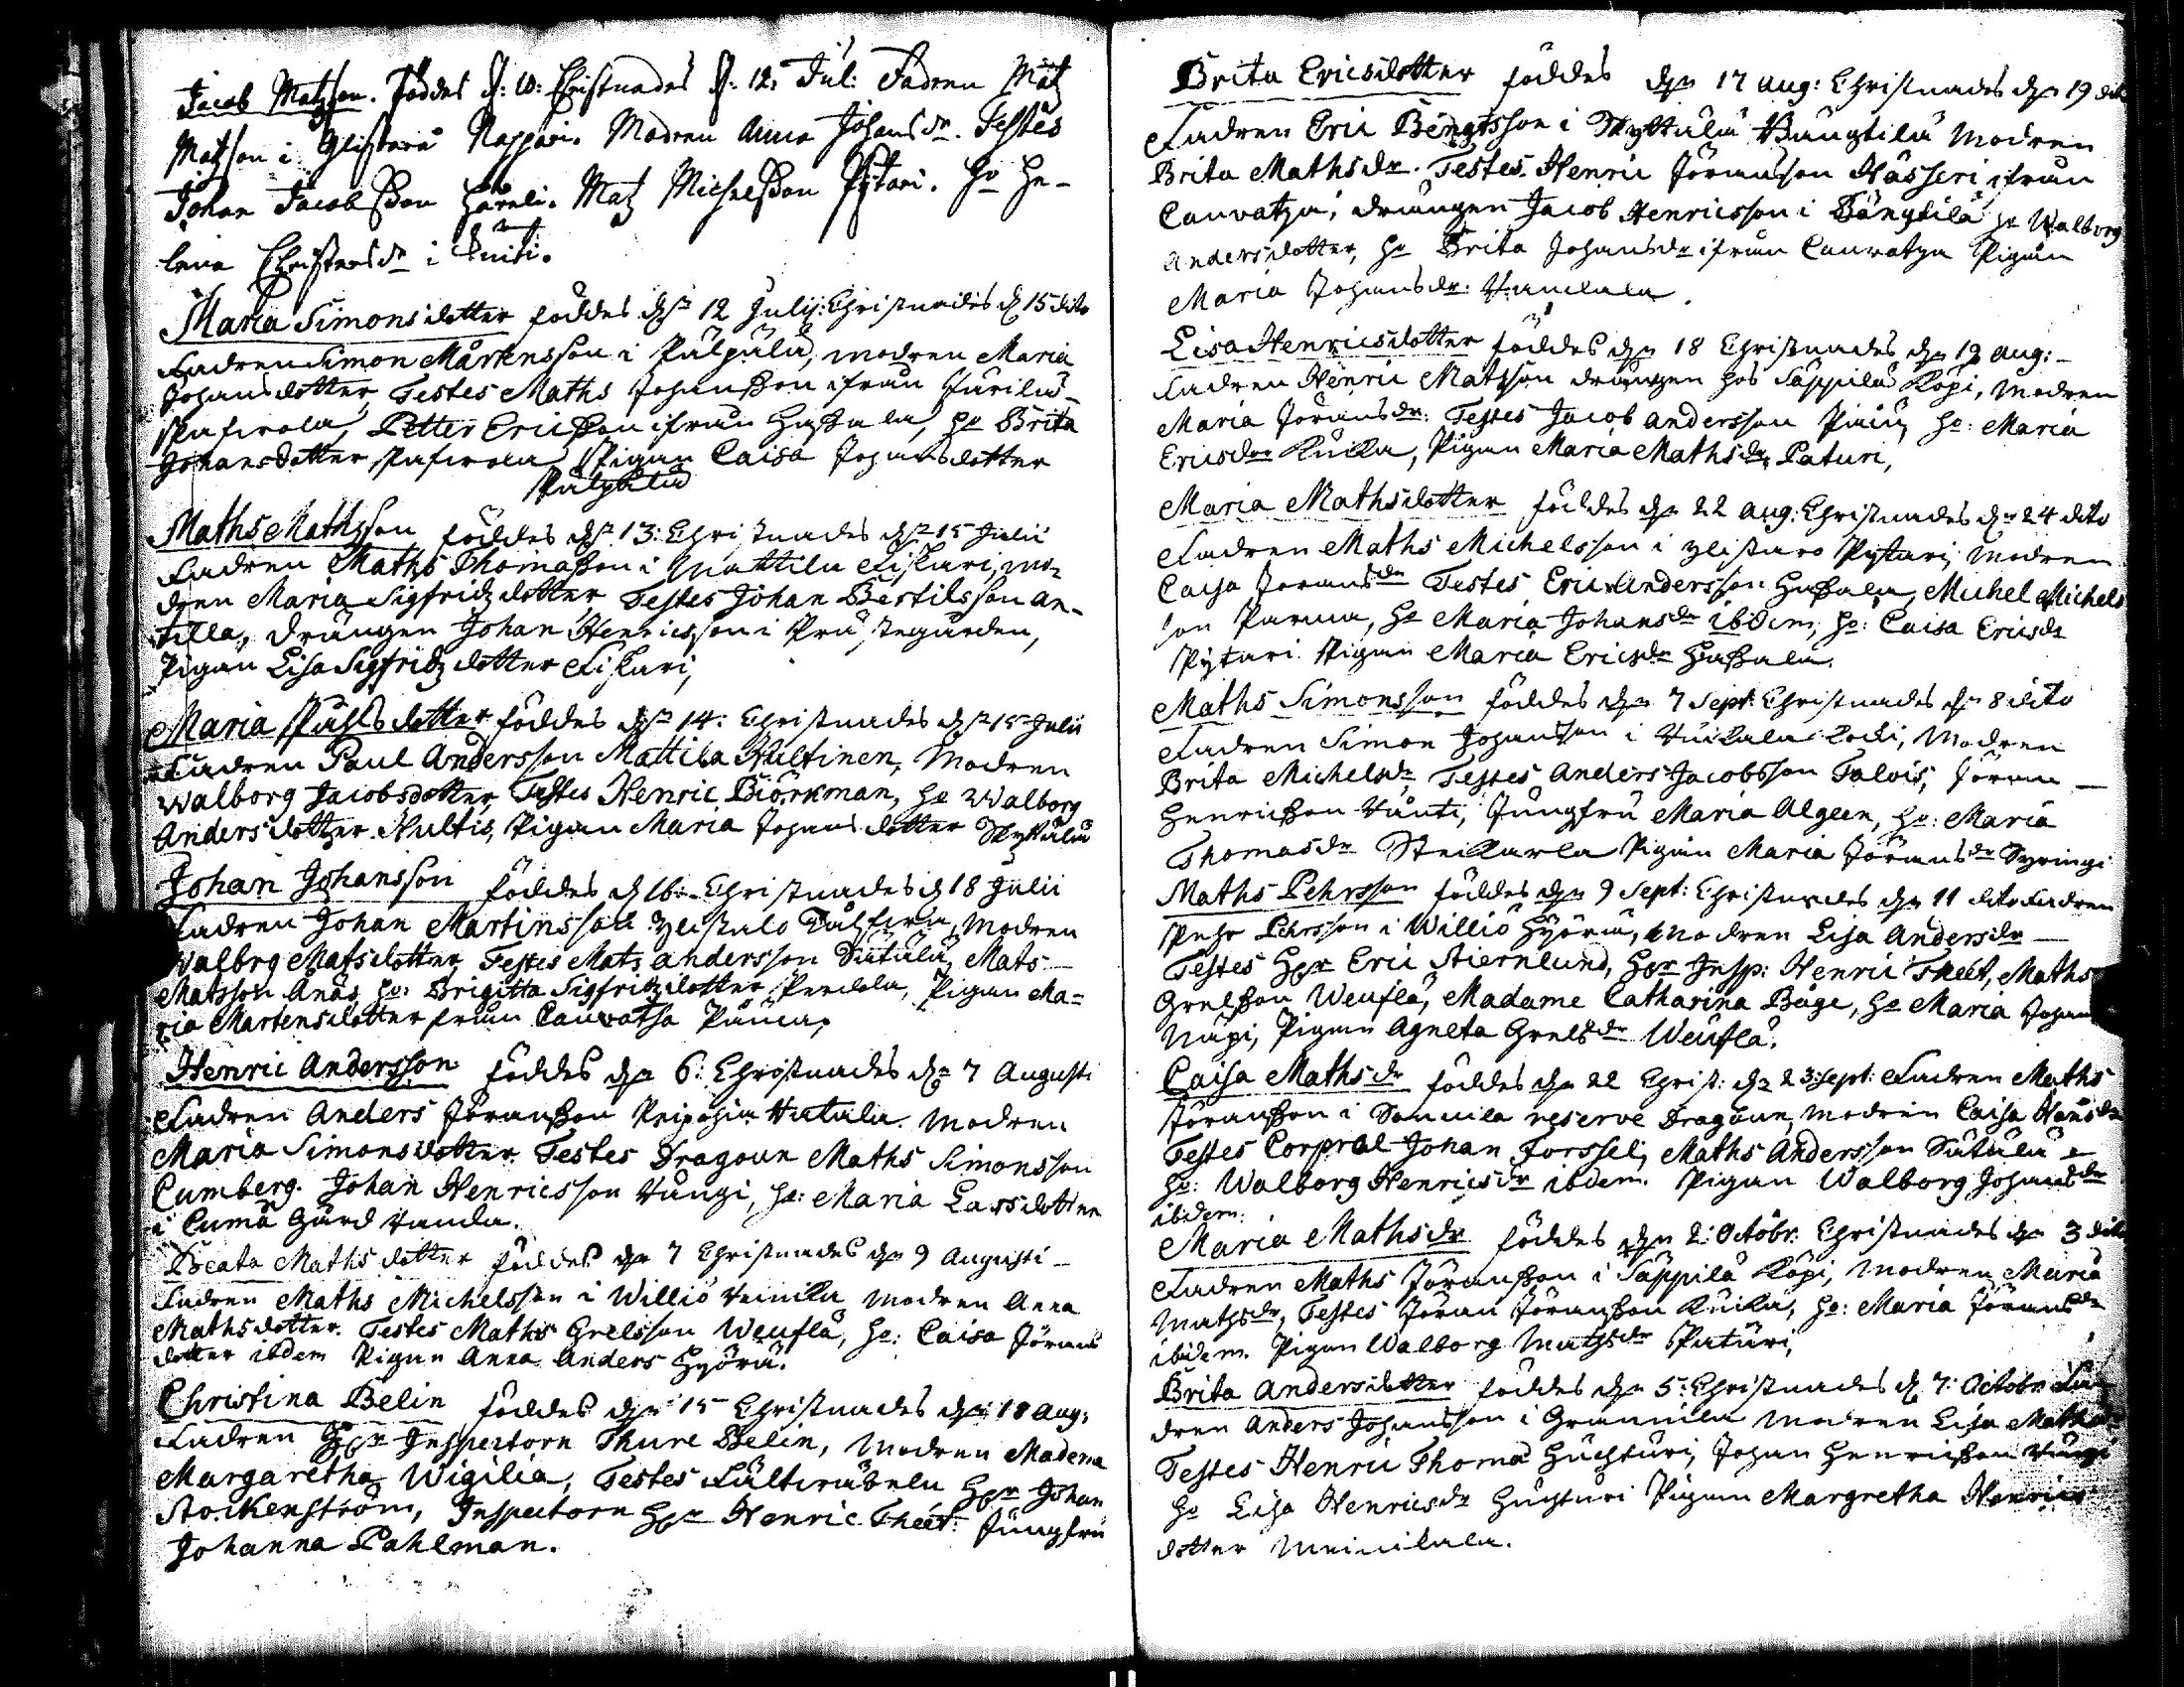 Jacob Matzson. föddes d: 10: Christnades d: 12. Jul: Fadren Matz
Matzson i Glistarå Nappari. Modren Anna Johans dr. Testes
Johan Jacobsson Håneli. Matz Michelsson Pytari. ho He-
lena Christersdr i
Maria Simonsdotter föddes dn 12 Julij: Christnades d 15 dito
Fadren Simon Mårtensson i Pälpälä, modren Maria
Johansdotter, Testes Maths Johansson ifrån
Petter Ericsson ifrån Hassala, ho Brita
Johansdotter Pigan Caisa Johansdotter
Pälpälä
Maths Mathsson föddes dn 13: Christnades dn 15 Julii
Fadren Maths Thomasson i Mattila Fiskari, mo-
dren Maria Sigfridzdotter, Testes Johan Bertilsson An-
tilla, drängen Johan Henricsson i Prästegården,
Pigan Lisa Sigfridzdotter Fiskari,
Maria Påhlsdotter föddes dn 14: Christnades dn 15 Julii
Fadren Paul Andersson Mattila Hultinen, Modren
Walborg Jacobsdotter Testes Henric Biörkman, ho Walborg
Andersdotter Hultis, Pigan Maria Johansdotter Skyttälä
Johan Johansson föddes d 16: Christnades d 18 Julii
Fadren Johan Martinsson Ylistalo modren
Walbrg Matsdotter, Testes Mats Andersson Sätälä, Mats
Matsson Anäs ho: Brigitta Sigfritzdotter Pendola, Pigan Ma=
ria Martensdotter från Cauvatsa
Henric Andersson föddes dn 6: Christnades dn 7 Augusti
Fadren Anders Jöransson Pripohja Vatula. modren
Maria Simonsdotter. Testes Dragoun Maths Simonsson
Cumberg. Johan Henricsson Vängi, ho: Maria Larsdotter
i Cumå Gård
Beata Mathsdotter föddes dn 7 Christnades dn 9 Augusti
Fadren Maths Michelsson i Williö modren Anna
Mathsdotter. Testes Maths Grelsson Weuflä, ho: Caisa Jörans
dotter ibdem Pigan Anna Anders Hyörä.
Christina Belin föddes dn 15 Christnades dn 18 Aug:
Fadren Hr Inspectorn Thure Belin, Modren Madema
Margaretha Wigilia, Testes Hr Johan
Stockenström, Inspectorn Hr Henric Theet: Jungfru
Johanna Pahlman.
Brita Ericsdotter föddes dn 17 Aug: Christnades dn 19 dito
Fadren Eric Bengtsson i Skyttälä Bängtilä Modren
Brita Mathsdr. Testes Henric Jöransson Hässeri ifrån
Cauvatza, drängen Jacob Henricsson i Bängtilä ho Walborg
Andersdotter, ho Brita Johansdr ifrån Cauvatza Pigan
Maria Johansdr:
Lisa Henricsdotter föddes dn 18 Christnades dn 19 Aug:
Fadren Henric Matsson drängen hos Säppilä Köpi, Modren
Maria Jöransdr: Testes Jacob Andersson ho: Maria
Ericsdr Pigan Maria Mathsdr Paturi,
Maria Mathsdotter föddes dn 22 Aug: Christnades dn 24 dito
Fadren Maths Michelsson i Ylistaro Pytari, Modren
Caisa Joransdr Testes Eric Andersson Hassala, Michel Michels
son Parma, ho Maria Johansdr ibdem, ho: Caisa Ericsdr
Pytari Pigan Maria Ericsdr Hassala.
Maths Simonsson föddes dn 7 Sept: Christnades dn 8 dito
Fadren Simon Johansson i Modren
Brita Michelsdr, Testes Anders Jacobsson Talvis, Jöran
Henricsson Jungfru Maria Algeen, ho: Maria
Thomasdr Pigan Maria Jöransdr Syringi
Maths Pehrsson föddes dn 9 Sept: Christnades dn 11 dito Fadren
Pehr Pehrsson i Williö Hyörä, Modren Lisa Andersdr
Testes Hr Eric Stiernlund, Hr Insp: Henric Theet, Maths
Grelsson Weuflä, Madame Catharina Båge, ho Maria Johan
Näpi, Pigan Agneta Grelsdr Weuflä.
Caisa Mathsdr föddes dn 22 Christ: dn 23 Sept: Fadren Maths
Jöransson i reserve Dragoun, modren Caisa Hansdr
Testes Corpral Johan Forssel, Maths Andersson Sätälä
ho: Walborg Henricsdr ibdem. Pigan Walborg Johansdr
ibdem.
Maria Mathsdr föddes dn 2: Octobr: Christnades dn 3 dito
Fadren Maths Jöransson i Säppilä Köpi, Modren Maria
Mathsdr, Testes Jöran Jöransson ho: Maria Jöransdr
ibidem. Pigan Walborg Mathsdr Paturi,
Brita Andersdotter föddes dn 5: Christnades d 7: Octobr Fa-
dren Anders Johansson i modren Lisa Mathsdr
Testes Henric Thoma Huchturi, Johan Henricsson Vängi
ho Lisa Henricsdr Huchturi Pigan Margretha Henrics
dotter